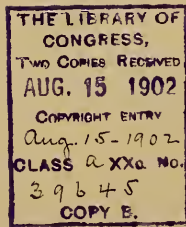 THE LIBRARY OF
CONGRESS,
TWO COPIES RECEIVED
AUG. 15 1902
COPYRIGHT ENTRY
Aug. 15-1902
CLASS a XXc. No.
39645
COPY B.